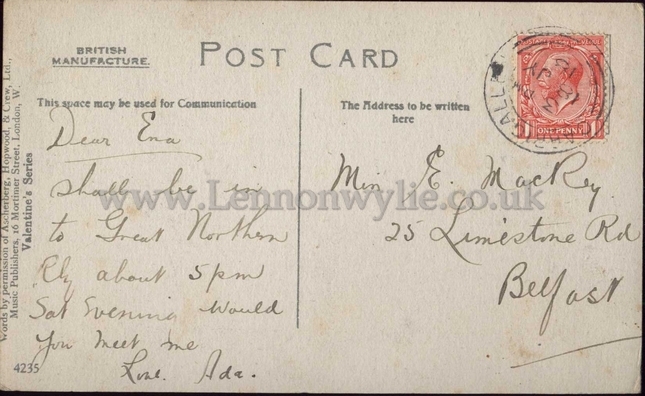 BRITISH
MANUFACTURE.
POST CARD
This space may be used for Communication
The Address to be written
here
Dear Ena
shall be in
to Great Northern
Rly about 5pm
Sat Evening Would
You meet me
Love Ada.
Miss E. MacKey
25 Limestone Rd
Belfast
ONE PENNY
Words by permission of Ascherberg, Hopwood, & Crew, Ltd.,
Music Publishers, 16 Mortimer Street, London, W.
Valentine's Series
4235
www.Lennonwylie.co.uk